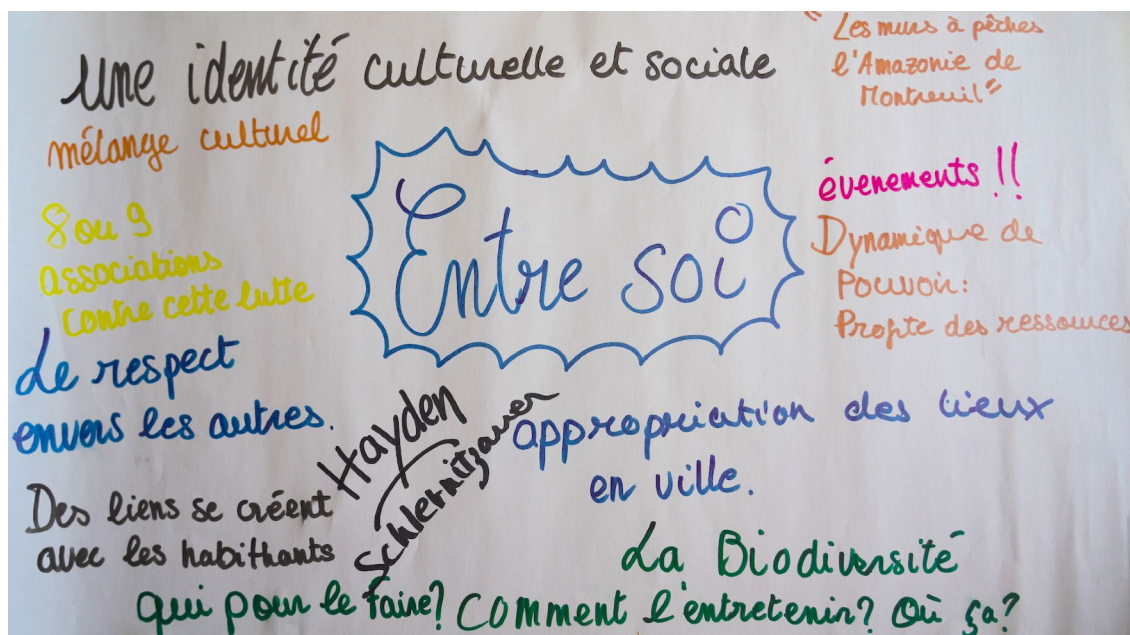 une identité culturelle et sociale
"Les murs à pêches
l'Amazonie de
Montreuil"
mélange culturel
Entre soi
évenements !!
8 ou 9
associations
contre cette lutte
Dynamique de
Pouvoir:
Profite des ressources
Le respect
envers les autres.
Hayden
Schlernitzauer
appropriation des lieux
en ville.
Des liens se créent
avec les habithants
La Biodiversité
qui pour le faire? Comment l'entretenir? Où ça?